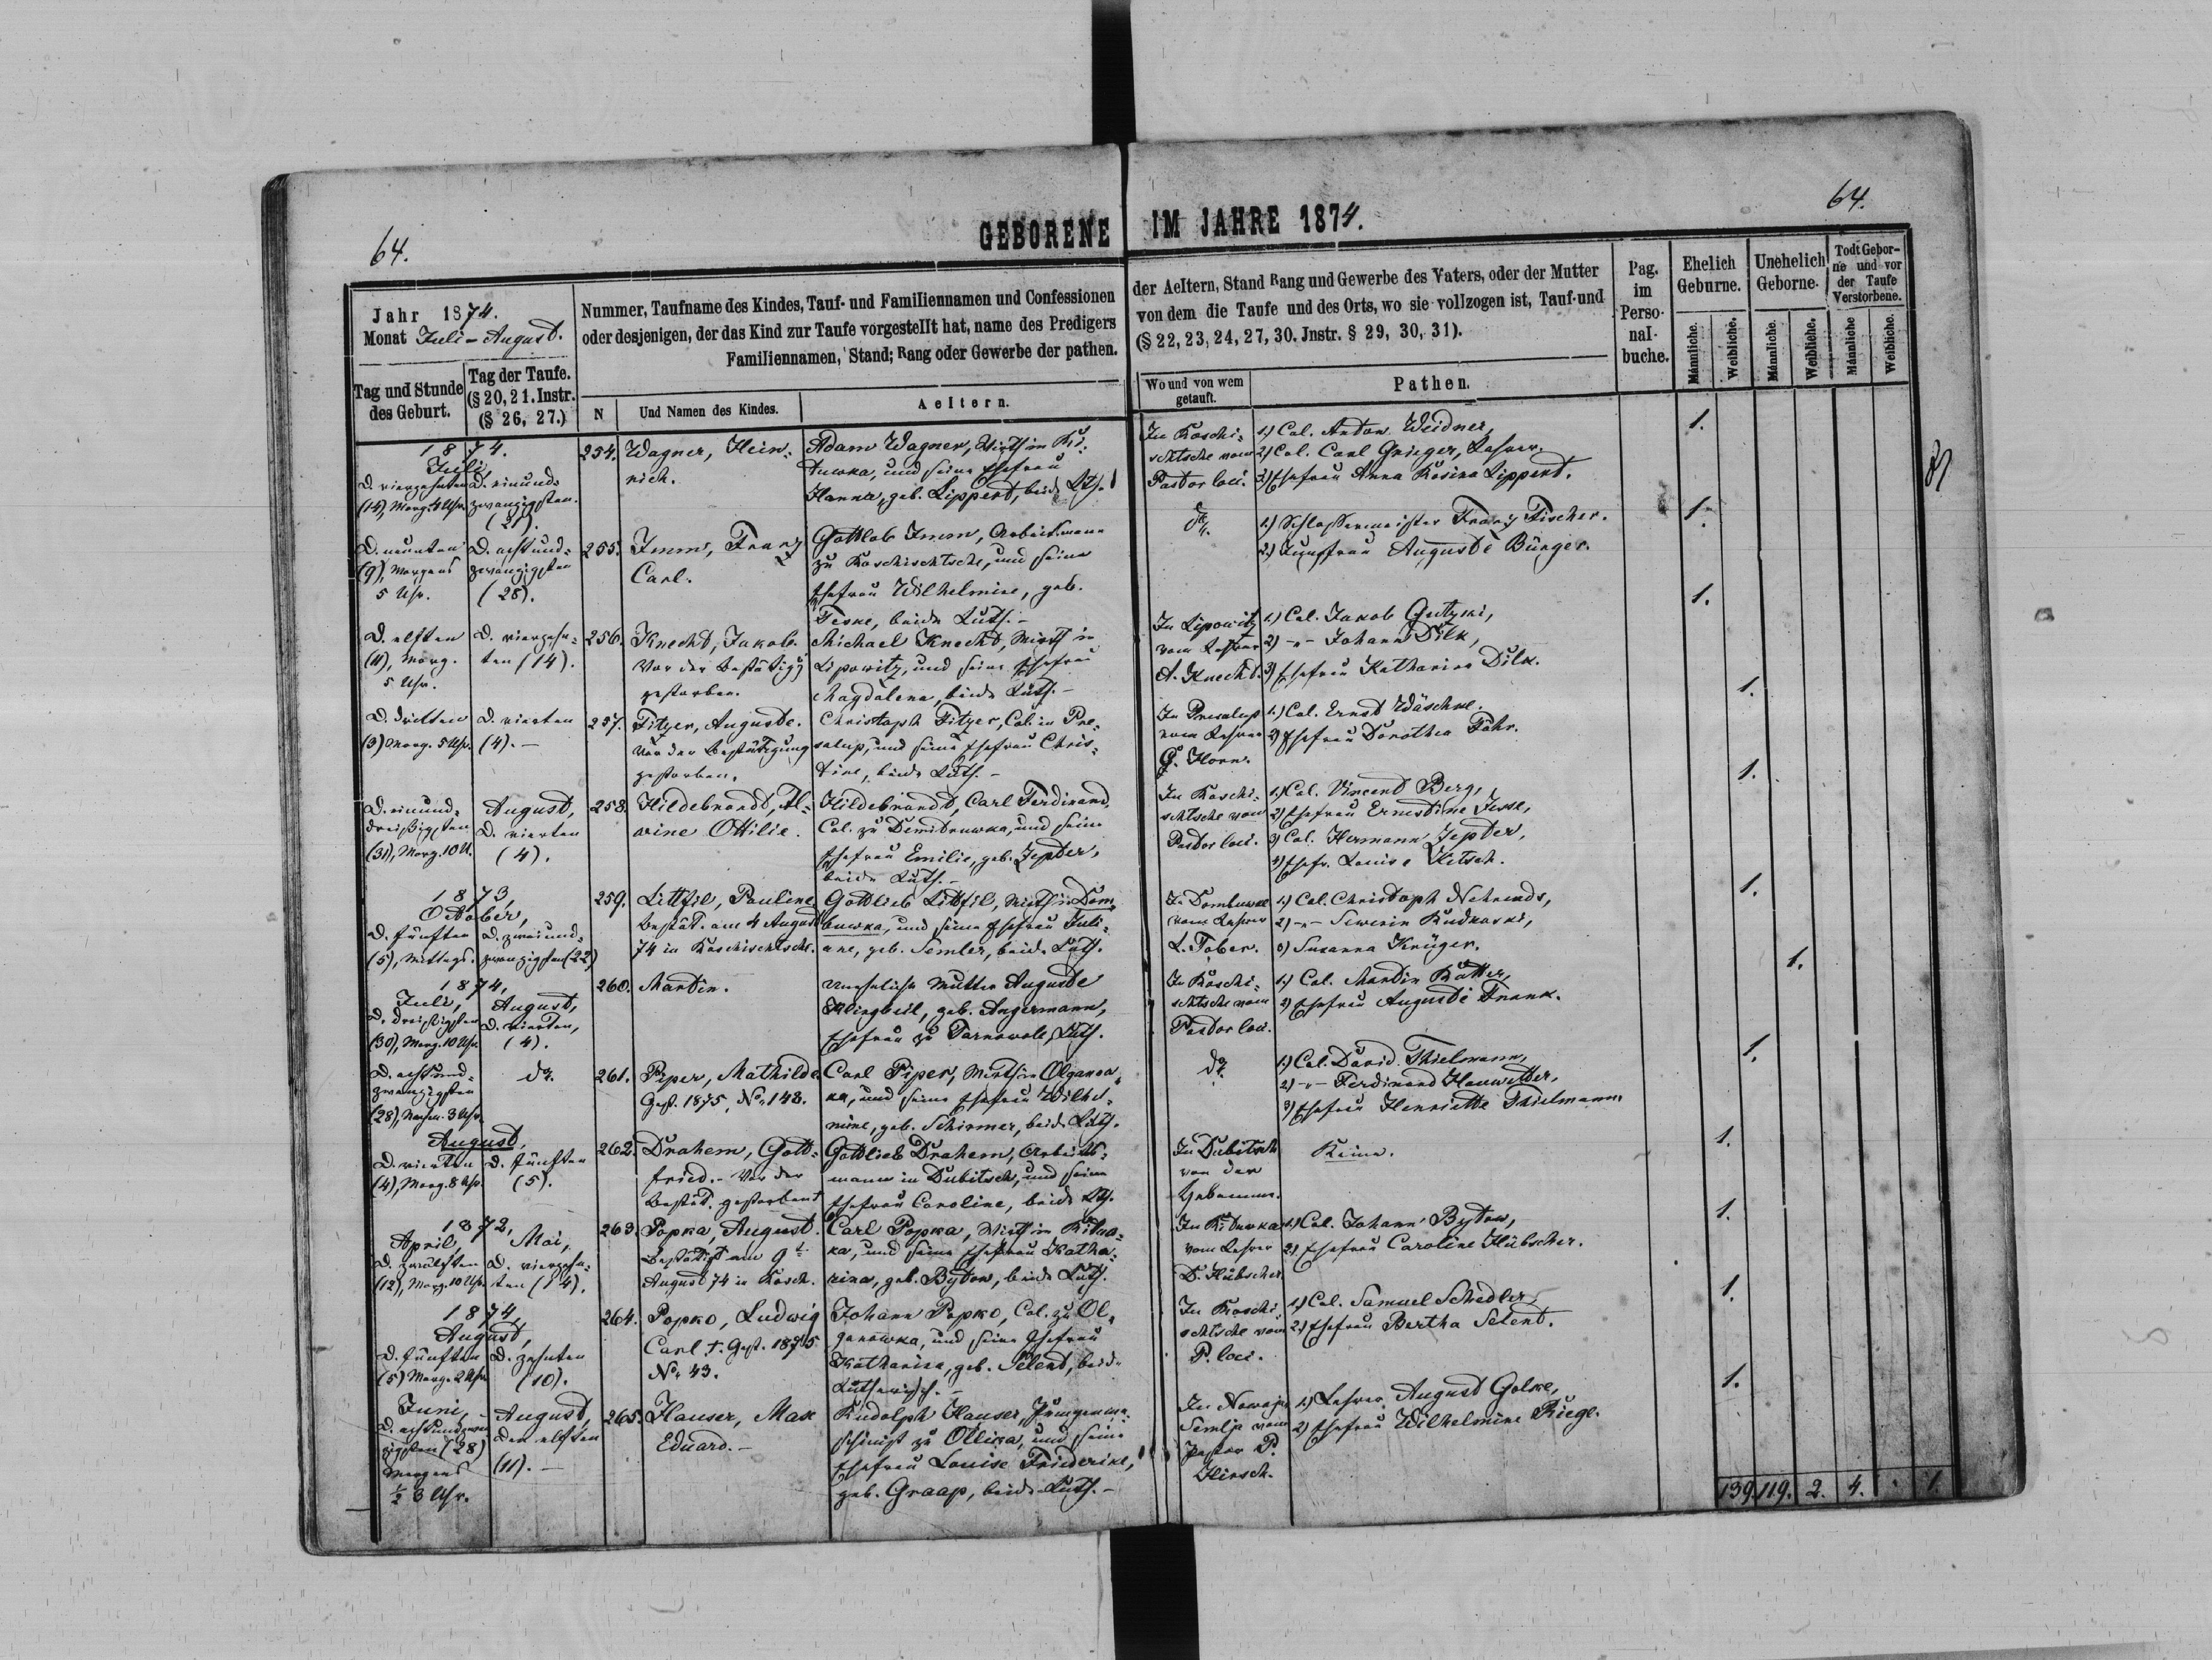 64.
GEBORENE
Jahr 1874.
Monat Juli-August.
Nummer, Taufname des Kindes, Tauf- und Familiennamen und Confessionen
oder desjenigen, der das Kind zur Taufe vorgestellt hat, name des Predigers
Familiennamen, Stand; Rang oder Gewerbe der pathen.
Tag und Stunde
des Geburt.
Tag der Taufe.
(§ 20, 21. Instr.
(§ 26, 27.)
N
Und Namen des Kindes.
Aeltern.
1874.
Juli,
D. vierzehnten
(14), Morg. 4 Uhr.
D. einund-
zwanzigsten
(21).
254.
Wagner, Hein-
rich.
Adam Wagner, Wirth in Ki-
tuwka, und seine Ehefrau
Hanna, geb. Lippert, beide Lth.
D. neunten
(9), Morgens
5 Uhr.
D. achtund-
zwanzigsten
(28).
255.
Imm, Franz
Carl.
Gottlob Imm, Arbeitsmann
zu Roschischtsche, und seine
Ehefrau Wilhelmine, geb.
Teske, beide Luth.-
D. elften
(11), Morg.
5 Uhr.
D. vierzehn-
ten (14).
256.
Knecht, Jakob.
Vor der Bestätigg
gestorben.
Michael Knecht, Wirth in
Lipowitz, und seine Ehefrau
Magdalena, beide Luth.-
D. dritten
(3) Morg. 5 Uhr.
D. vierten
(4).-
257.
Fitzer, Auguste.
Vor der Bestätigung
gestorben.
Christoph Fitzer, Col. in Pre-
salup, und seine Ehefrau Chris-
tine, beide Luth.-
D. einund-
dreißigsten
(31), Morg. 10 U.
August,
D. vierten
(4).
258.
Hildebrandt, Al-
wine Ottilie.
Hildebrandt, Carl Ferdinand,
Col. zu Demidruwka, und seine
Ehefrau Emilie, geb. Jepter,
beide Luth.-
1873,
October,
D. fünften
(5), Mittags.
D. zweiund-
zwanzigsten (22)
259.
Littfil, Pauline
Bestät. am 4 August
74 in Roschischtsche.
Gottlieb Littfil, Wirth in Dom-
buwka, und seine Ehefrau Juli-
ane, geb. Semler, beide Luth.
1874,
Juli,
D. dreißigsten
(30), Morg. 10 Uhr.
August,
D. vierten,
(4).
260.
Martin.
Uneheliche Mutter Auguste
Klingbeil, geb. Angermann,
Ehefrau zu Tarnowole, Luth.
D. achtund-
zwanzigsten
(28), Nachm. 3 Uhr.
do.
261.
Piper, Mathilde.
Gest. 1875, No. 148.
Carl Piper, Wirth in Olganow-
ka, und seine Ehefrau Wilhel-
mine, geb. Schirmer, beide Luth.
August.
D. vierten
(4), Morg. 8 Uhr.
D. fünften
(5).
262.
Drahem, Gott-
fried.- Vor der
Bestät. gestorben †
Gottlieb Drahem, Arbeits-
mann in Dubitsch, und seine
Ehefrau Caroline, beide Lth.
1872,
April,
D. zwölften
(12), Morg. 10 Uhr.
Mai,
D. vierzehn-
ten (14).
263.
Popka, August.
Bestätigt am 9t.
August 74 in Rosch.
Carl Popka, Wirth in Kituw-
ka, und seine Ehefrau Katha-
rina, geb. Bytow, beide Luth.
1874,
August,
D. fünften
(5) Morg. 2 Uhr.
D. zehnten
(10).
264.
Popko, Ludwig
Carl †. Gest. 1875
No. 43.
Johann Popko, Col. zu Ol-
ganowka, und seine Ehefrau
Katharina, geb. Selent, beide
Lutherisch.-
Juni,
D. achtundzwan-
zigsten (28)
Morgens
½ 3 Uhr.
August,
den elften
(11).-
265.
Hauser, Max
Eduard.-
Rudolph Hauser,
zu Ollika, und seine
Ehefrau Louise Friederike,
geb. Graap, beide Luth.-
64.
IM JAHRE 1874.
der Aeltern, Stand Rang und Gewerbe des Vaters, oder der Mutter
von dem die Taufe und des Orts, wo sie vollzogen ist, Tauf-und
(§ 22, 23, 24, 27, 30. Jnstr. § 29, 30, 31).
Pag.
im
Perso-
nal-
buche.
Ehelich
Geburne.
Unehelich
Geborne.
Todt Gebor-
ne und vor
der Taufe
Verstorbene.
Männliche.
Weibliche.
Männliche.
Weibliche.
Männliche
Weibliche.
Wo und von wem
getauft.
Pathen.
In Roschi-
schtsche vom
Pastor loci.
1.) Col. Anton Weidner,
2) Col. Carl Grieger, Lehrer.
3) Ehefrau Anna Rosina Lippert.
1.
do.
1.) Schlossermeister Franz Fischer.
2.) Jungfrau Auguste Bürger.
1.
In Lipowitz
vom Lehrer
A. Knecht.
1.) Col. Jakob Gutzki,
2) -"- Johann Dilk,
3) Ehefrau Katharina Dilk.
1.
In Presalup
vom Lehrer
G. Horn.
1.) Col. Ernst Wäschke.
2) Ehefrau Dorothea Föhr.
1.
In Roschi-
schtsche vom
Pastor loci.
1.) Col. Vincent Berg,
2) Ehefrau Ernestine Jesse,
3) Col. Hermann Jepter,
4) Ehefr. Louise Kitsch.
1.
In Dombuwka
vom Lehrer
L. Tober.
1.) Col. Christoph Nehrends,
2) -"- Sewerin Rudkowski,
3) Susanna Krüger.
1.
In Roschi-
schtsche vom
Pastor loci.
1.) Col. Martin Rätter,
2) Ehefrau Auguste Frank.
1.
do.
1.) Col. David Thielmann,
2) -"- Ferdinand Hauwetter,
3) Ehefrau Henriette Thielmann.
1.
In Dubitsch
von der
Hebamme.
Keine.
1.
In Kituwka
vom Lehrer
D. Hübscher.
1.) Col. Johann Bytow,
2.) Ehefrau Caroline Hübscher.
1.
In Roschi
schtsche vom
P. loci.
1.) Col. Samuel Schedler,
2.) Ehefrau Bertha Selent.
1.
In Nowaja
Semlja vom
Pastor P.
Hirsch.
1.) Lehrer August Golke,
2) Ehefrau Wilhelmine Riege.
1.
139. 119. 2. 4. . 1.